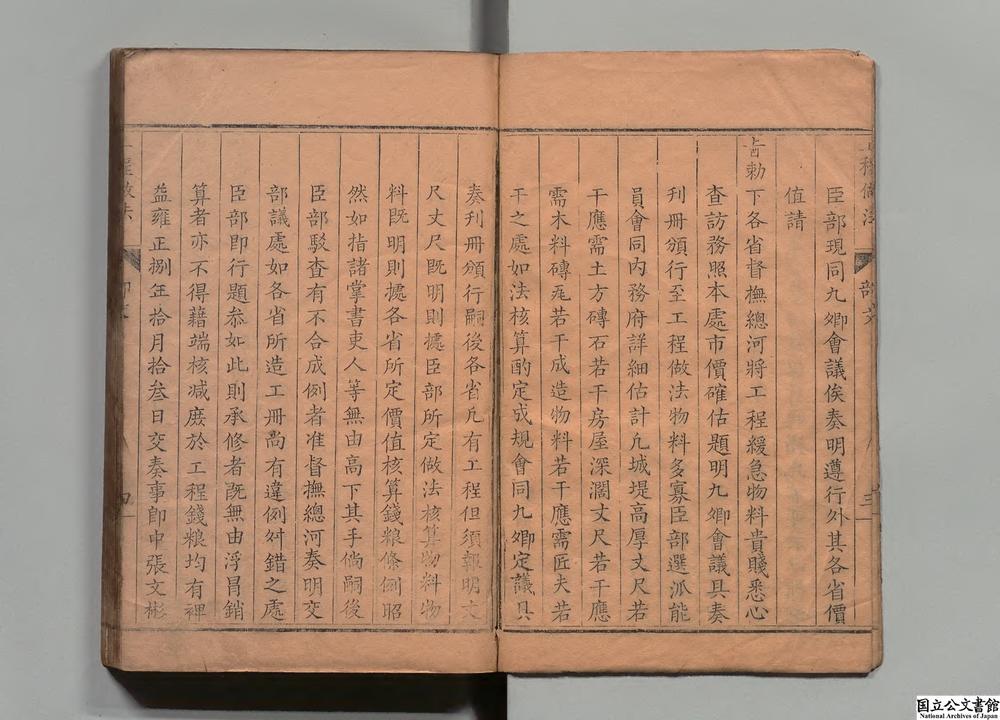 工程做法
部文
三
臣部現同九卿會議俟奏明遵行外其各省價
值請
旨勅下各省督撫總河將工程緩急物料貴賤悉心
查訪務照本處市價確估題明九卿會議具奏
刋冊頒行至工程做法物料多寡臣部選派能
員會同内務府詳細估計凢城堤高厚丈尺若
干應需土方磚石若干房屋深濶丈尺若干應
需木料磚瓦若干成造物料若干應需匠夫若
干之處如法核算酌定成規會同九卿定議具
奏刋冊頒行嗣後各省凢有工程但須報明丈
尺丈尺既明則據臣部所定做法核算物料物
料既明則據各省所定價值核算錢粮條例昭
然如指諸掌書吏人等無由高下其手倘嗣後
臣部駁查有不合成例者准督撫總河奏明交
部議處如各省所造工冊尚有違例舛錯之處
臣部即行題叅如此則承修者既無由浮冒銷
算者亦不得藉端核减庶於工程錢粮均有裨
益雍正捌年拾月拾叁日交奏事郎中張文彬
工程做法
部文
四
国立公文書館
National Archives of Japan